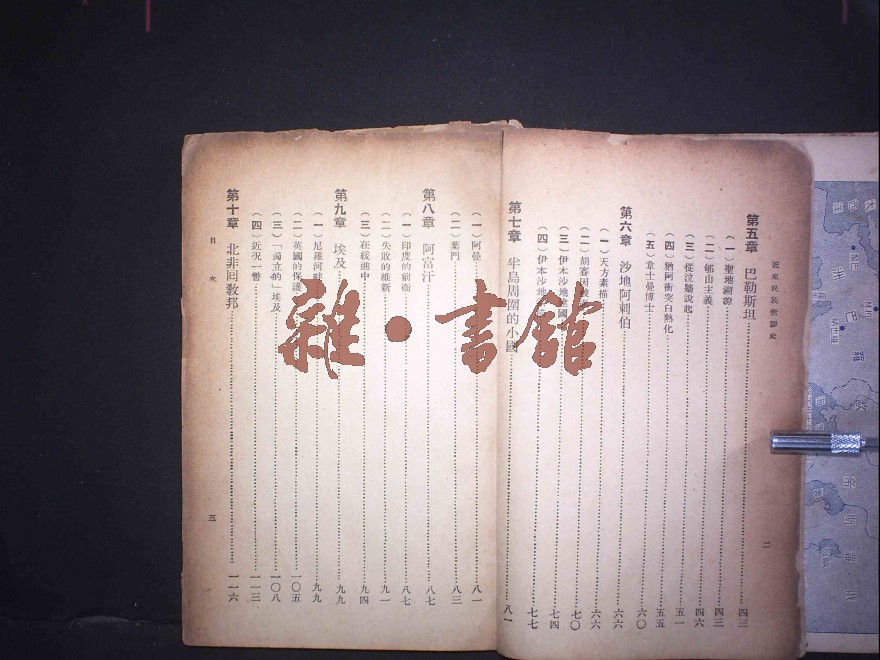 近東民族奮鬥史
第五章 巴勒斯坦 四三
(一)聖地溯源 四三
(二)郇山主義 四六
(三)從泣牆說起 五一
(四)猶阿衝突白熱化 五五
(五)韋士曼博士 六〇
第六章 沙地阿剌伯 六六
(一)天方素描 六六
(二)胡賽因 七〇
(三)伊本沙地 國 七四
(四)伊本沙地 七七
二
第七章 半島周圍的小國 八一
(一)阿曼 八一
(二)葉門 八三
第八章 阿富汗 八七
(一)印度的前衛 八七
(二)失敗的維新 九一
(三)在緩進中 九四
第九章 埃及 九九
(一)尼羅河畔 九九
(二)英國的保護 一〇五
(三)「獨立的」埃及 一〇八
(四)近況一瞥 一一三
第十章 北非回教邦 一一六
目次
三
雜·書館